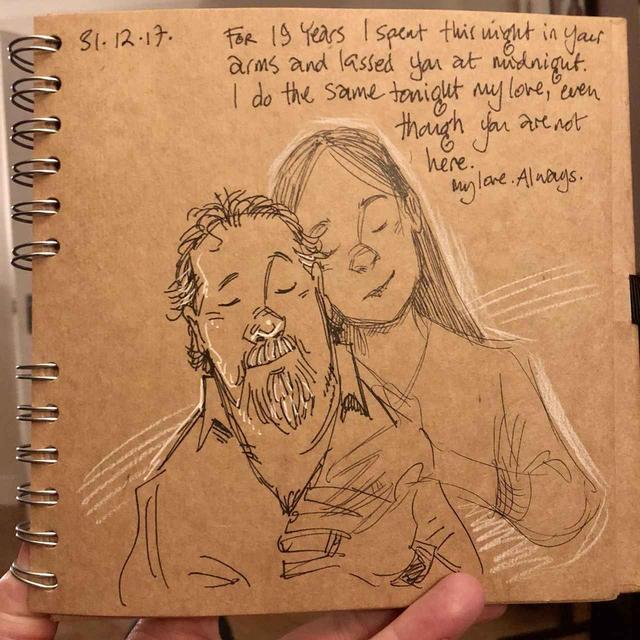 31.12.17.
For 19 Years I spent this night in your
arms and kissed you at midnight.
I do the same tonight my love, even
though you are not
here.
my love. Always.